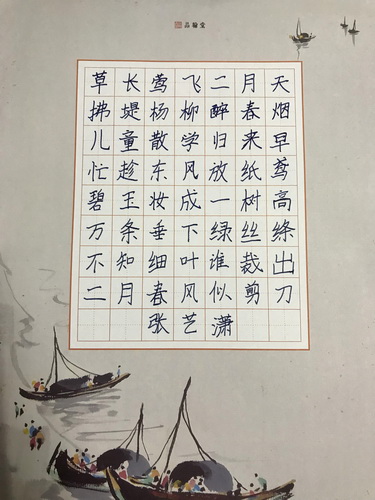 品翰堂
草长莺飞二月天
拂堤杨柳醉春烟
儿童散学归来早
忙趁东风放纸鸢
碧玉妆成一树高
万条垂下绿丝绦
不知细叶谁裁出
二月春风似剪刀
张艺潇